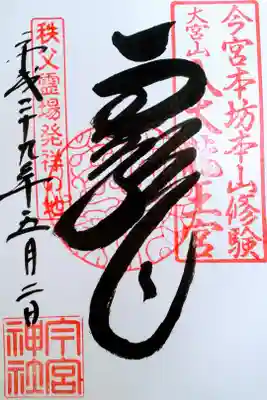 今宮本坊本山修験
大宮山
龍
秩父霊場発祥の地
平成二十九年五月二日
今宮神社